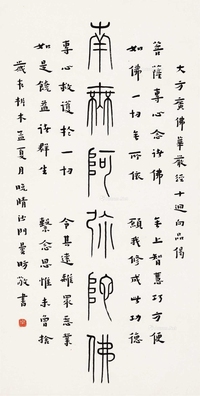 大方廣佛華嚴經十迴向品偈
菩薩專心念諸佛　無上智慧巧方便
如佛一切無所依　願我修成此功德
南無阿彌陀佛
專心救護於一切　令其遠離眾惡業
如是饒益諸群生　繫念思惟未曾捨
歲在析木孟夏月晚晴沙門曇昉敬書